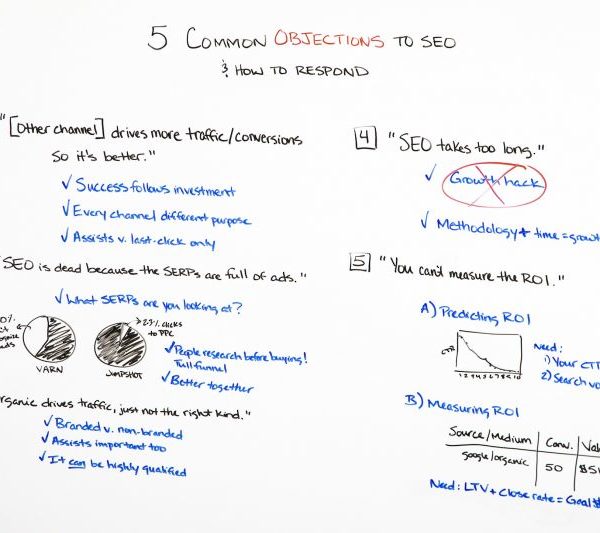 5 COMMON OBJECTIONS TO SEO
& HOW TO RESPOND
"[Other channel] drives more traffic/conversions
So it's better."
✓ Success follows investment
✓ Every channel different purpose
✓ Assists v. last-click only
SEO is dead because the SERPs are full of ads."
✓ What SERPs are you looking at?
VARN
2% clicks
to PPC
JUMPSHOT
✓ People research before buying!
Full funnel
✓ Better together
organic drives traffic, just not the right kind."
✓ Branded v. non-branded
✓ Assists important too
✓ It can be highly qualified
4 "SEO takes too long."
✓ Growth hack
✓ Methodology + time = growt
5 "You can't measure the ROI."
A) Predicting ROI
CTR
1 2 3 4 5 6 7 8 9 10
Need:
1) Your CTR
2) Search vo
B) Measuring ROI
Source/Medium Conv. Val
google/organic 50 $5
Need: LTV + Close rate = Goal $